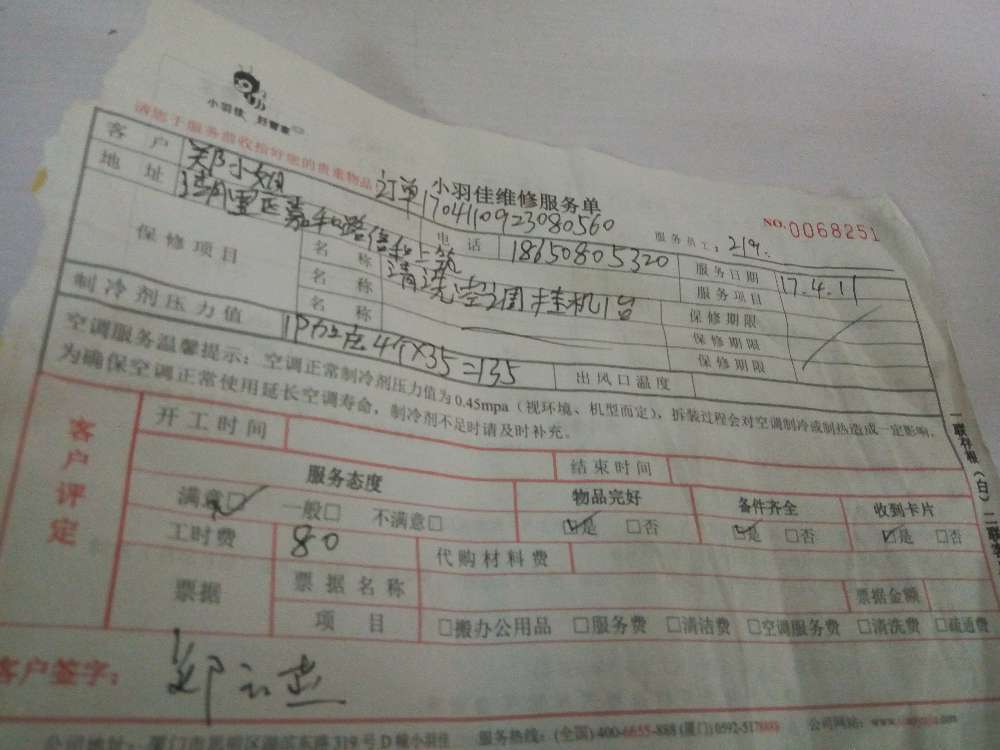 小羽佳 好管家
请您于服务前收拾好您的贵重物品
小羽佳维修服务单
NO.0068251
订单 170411092308056​0
服务员工：219.
客户 郑小姐 电话 18650805320 服务日期 17.4.11
地址 湖里区嘉和路信和上筑 服务项目
保修项目 名称 清洗空调挂机1台 保修期限
名称 保修期限
名称 保修期限
制冷剂压力值 出风口温度
空调服务温馨提示：空调正常制冷剂压力值为0.45mpa（视环境、机型而定），拆装过程会对空调制冷或制热造成一定影响，
为确保空调正常使用延长空调寿命，制冷剂不足时请及时补充。
客户评定
开工时间 结束时间
服务态度 物品完好 备件齐全 收到卡片
满意□ 一般□ 不满意□ □是 □否 □是 □否 □是 □否
工时费 80 代购材料费
票据 票据名称 票据金额
项目 □搬办公用品 □服务费 □清洁费 □空调服务费 □清洗费 □疏通费
客户签字：
公司地址：厦门市思明区湖滨东路319号D幢小羽佳 服务热线：(全国) 400-6655-888 (厦门) 0592-517 公司网站：www.
一联存根（白）二联